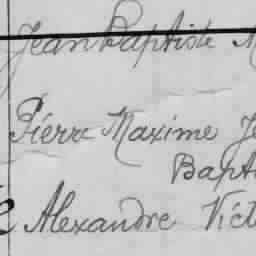 Jean Baptiste
Pierre Maxime Je
Bapti
Alexandre Vict